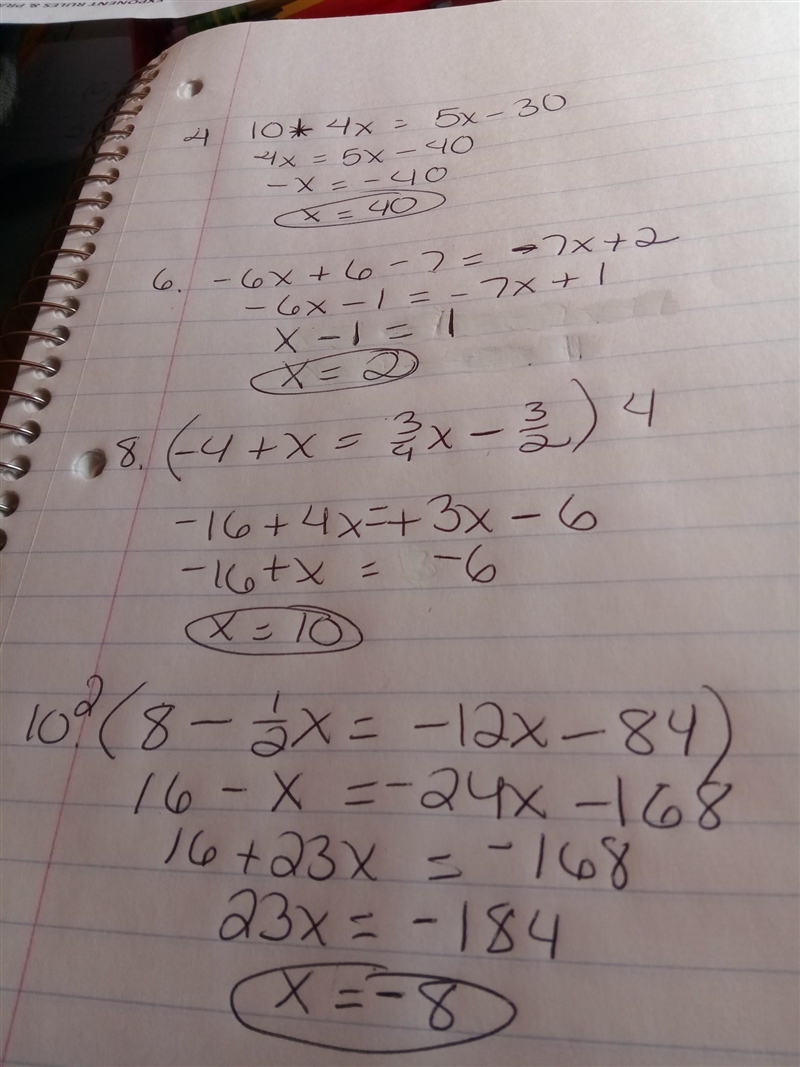 EXPONENT RULES & PRA
4 10 + 4x = 5x - 30
4x = 5x - 40
-x = -40
x = 40
6. -6x + 6 - 7 = -7x + 2
-6x - 1 = -7x + 1
x - 1 = 1
x = 2
8. (-4 + x = 3/4 x - 3/2) 4
-16 + 4x = + 3x - 6
-16 + x = -6
x = 10
10. 2(8 - 1/2 x = -12x - 84)
16 - x = -24x - 168
16 + 23x = -168
23x = -184
x = -8